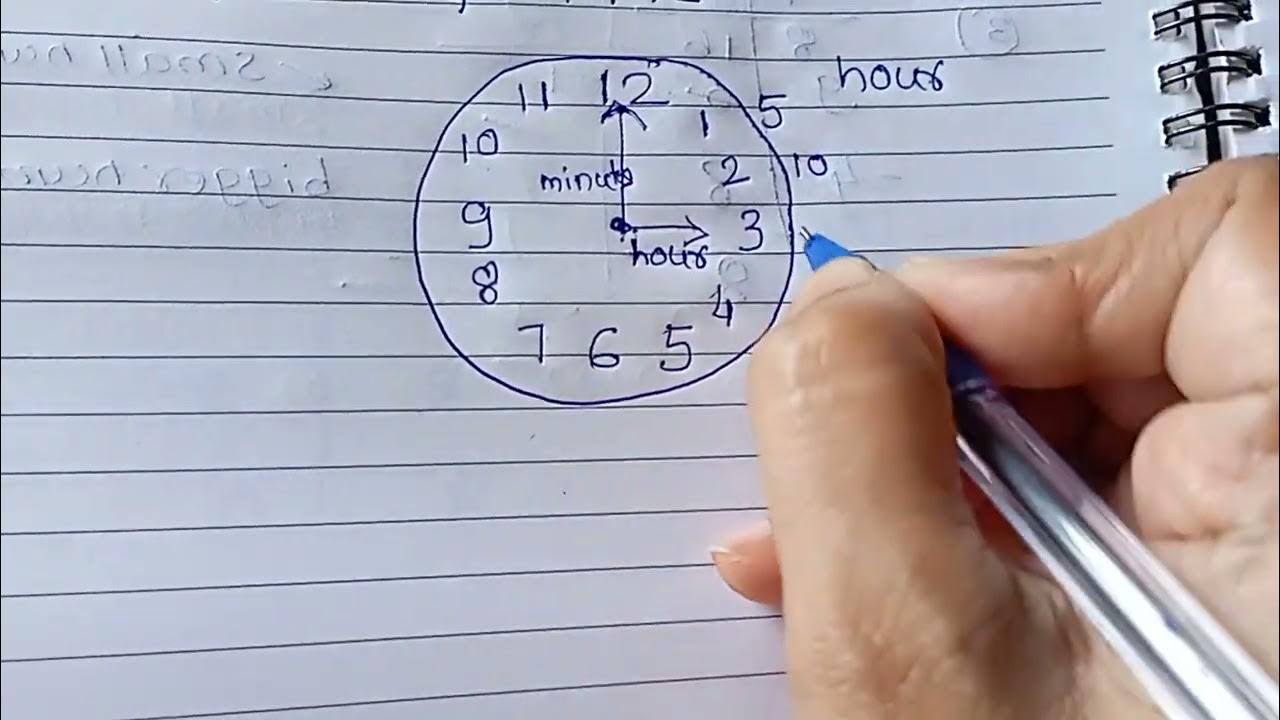 hour
11 12 1 5
10 2 10
minute
9 3
hour
8 4
7 6 5